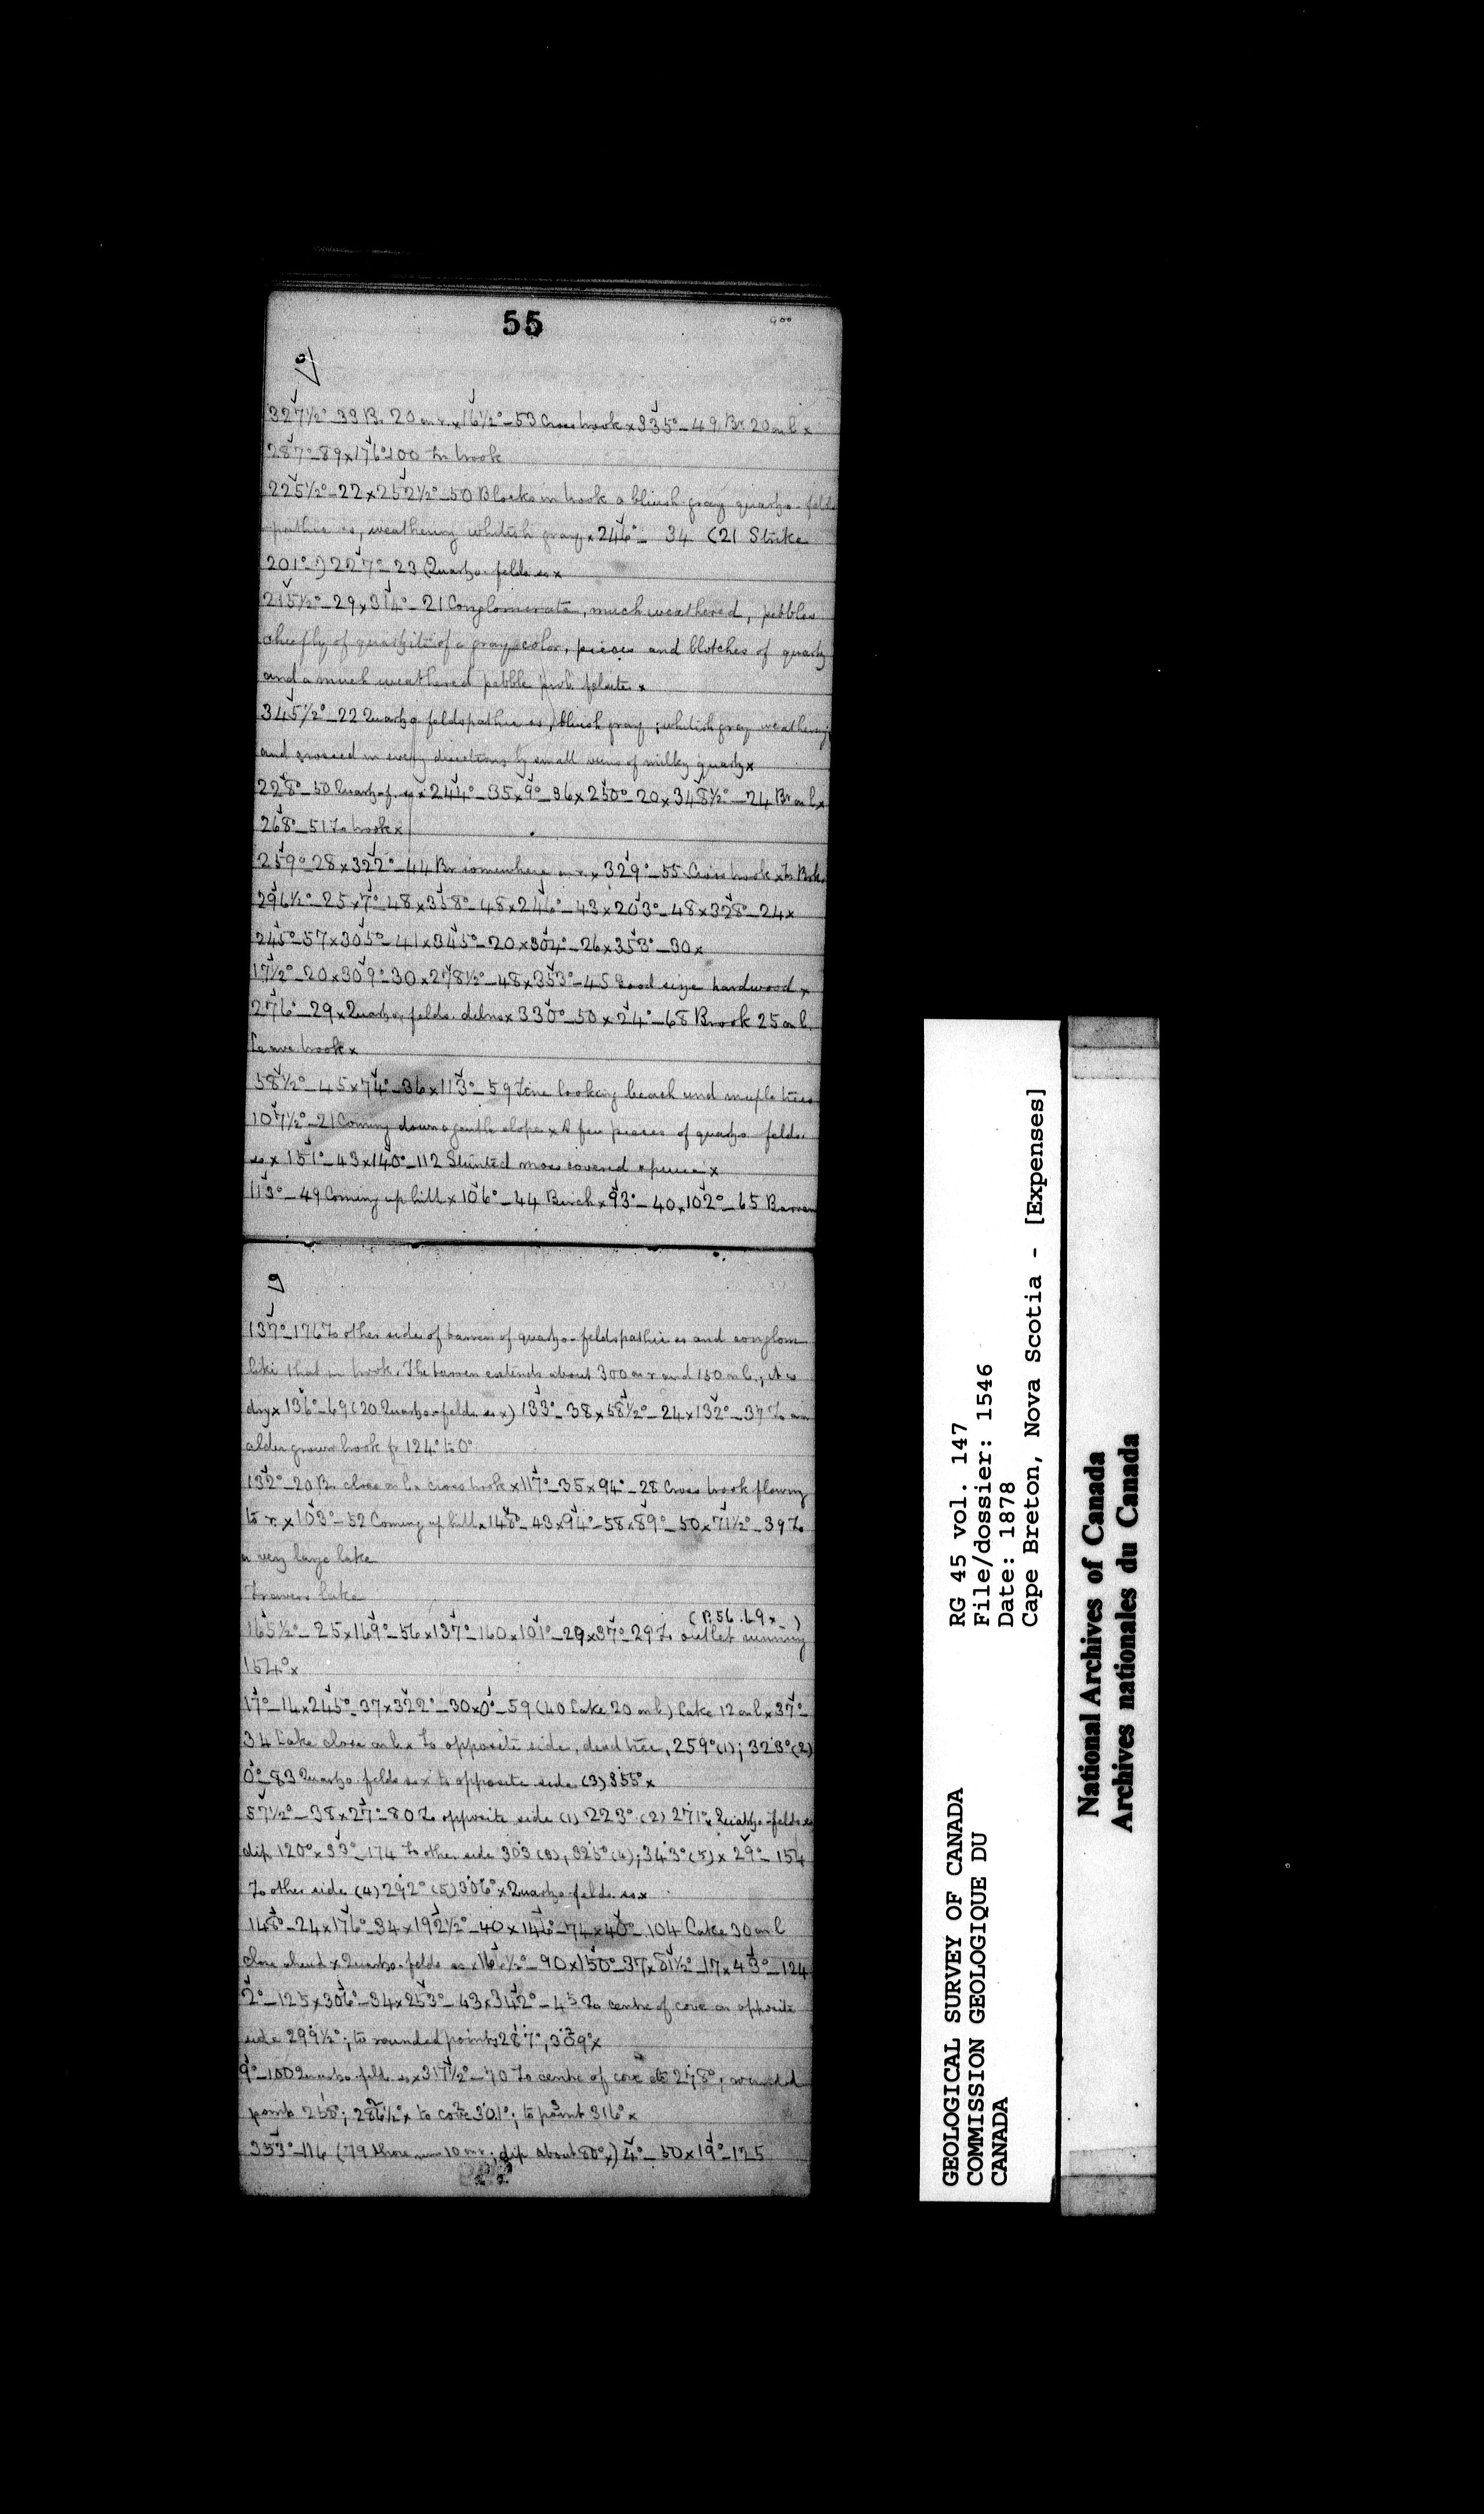 55
900
327½°_33 Br. 20 on r.x16½°_53 Cross brook x335°_49 Br 20 on l x
287°_89x176°100 In brook
225½°_22x252½°_50 Blocks in brook a bluish gray quartzo-felds
pathic ss, weathering whitish gray x246°_ 34 (21 Strike
201°_) 227°_23 Quartzo-felds. ss x
215½°_29x314°_21 Conglomerate, much weathered, pebbles
chiefly of quartzite of a gray color, pieces and blotches of quartz
and a much weathered pebble felsite x
345½°_22 Quartzo feldspathic ss, bluish gray; whitish gray weathering
and crossed in every directions by small veins of milky quartz x
228°_50 Quartzo-f. ss x244°_35x9°_36x250°_20x348½°_24 Br on l.x
268°_51 To brook x
259°_28x322°_44 Br somewhere on r.x329°_55 Cross brook x In Brk.
296½°_25x7°_48x358°_48x246°_43x203°_48x328°_24x
245°_57x305°_41x345°_20x304°_26x353°_30x
17½°_20x309°_30x278½°_48x353°_45 Good size hardwood x
276°_29x Quartzo felds. debris x330°_50x24°_68 Brook 25 on l.
Leave brook x
58½°_45x74°_36x113°_59 Fine looking beach and maple trees
107½°_21 Coming down a gentle slope x A few pieces of quartzo felds.
ss x151°_43x140°_112 Stunted moss covered spruce x
113°_49 Coming up hill x106°_44 Birch x93°_40x102°_65 Barren
9
137°_176 To other side of barren of quartzo-feldspathic ss and conglom
like that in brook. The barren extends about 300 on r and 150 on l.; it is
dry x136°_69 (20 Quartzo-felds. ss x) 133°_38x58½°_24x132°_37 To an
alder grown brook fr 124° to 0°
132°_20 Br. close on l.x cross brook x117°_35x94°_28 Cross brook flowing
to r.x103°_52 Coming up hill x148°_43x94°_58x89°_50x71½°_39 To
a very large lake
Traverse lake
(P.56.69x_)
165½°_25x169°_56x137°_160x101°_29x37°_29 To outlet running
154°x
17°_14x245°_37x322°_30x0°_59 (40 Lake 20 on l) Lake 12 on l.x37°_
34 Lake close on l.x To opposite side, dead tree, 259°(1); 323°(2)
0°_83 Quartzo-felds ss x to opposite side (3) 355°x
57½°_38x27°_80 To opposite side (1) 223° (2) 271°x Quartzo-felds ss
dip 120°x33°_174 To other side 303 (3), 325°(4); 343°(5)x 29°_154
To other side (4) 292° (5) 306°x Quartzo-felds. ss.x
148°_24x176°_34x192½°_40x146°_74x40°_104 Lake 30 on l
close ahead x Quartzo-felds ss x161½°_90x150°_37x81½°_17x43°_124
2°_125x306°_34x253°_43x342°_45 To centre of cove on opposite
side 299½°; to rounded points 287°, 309°x
9°_100 Quartzo-felds. ss x317½°_70 To centre of cove 278°; rounded
point 258°; 286½°x to cove 301°; to point 316°x
353°_116 (79 Shore 10 on r.; dip about 80°x) 4°_50x19°_125
GEOLOGICAL SURVEY OF CANADA
COMMISSION GEOLOGIQUE DU
CANADA
RG 45 vol. 147
File/dossier: 1546
Date: 1878
Cape Breton, Nova Scotia - [Expenses]
National Archives of Canada
Archives nationales du Canada